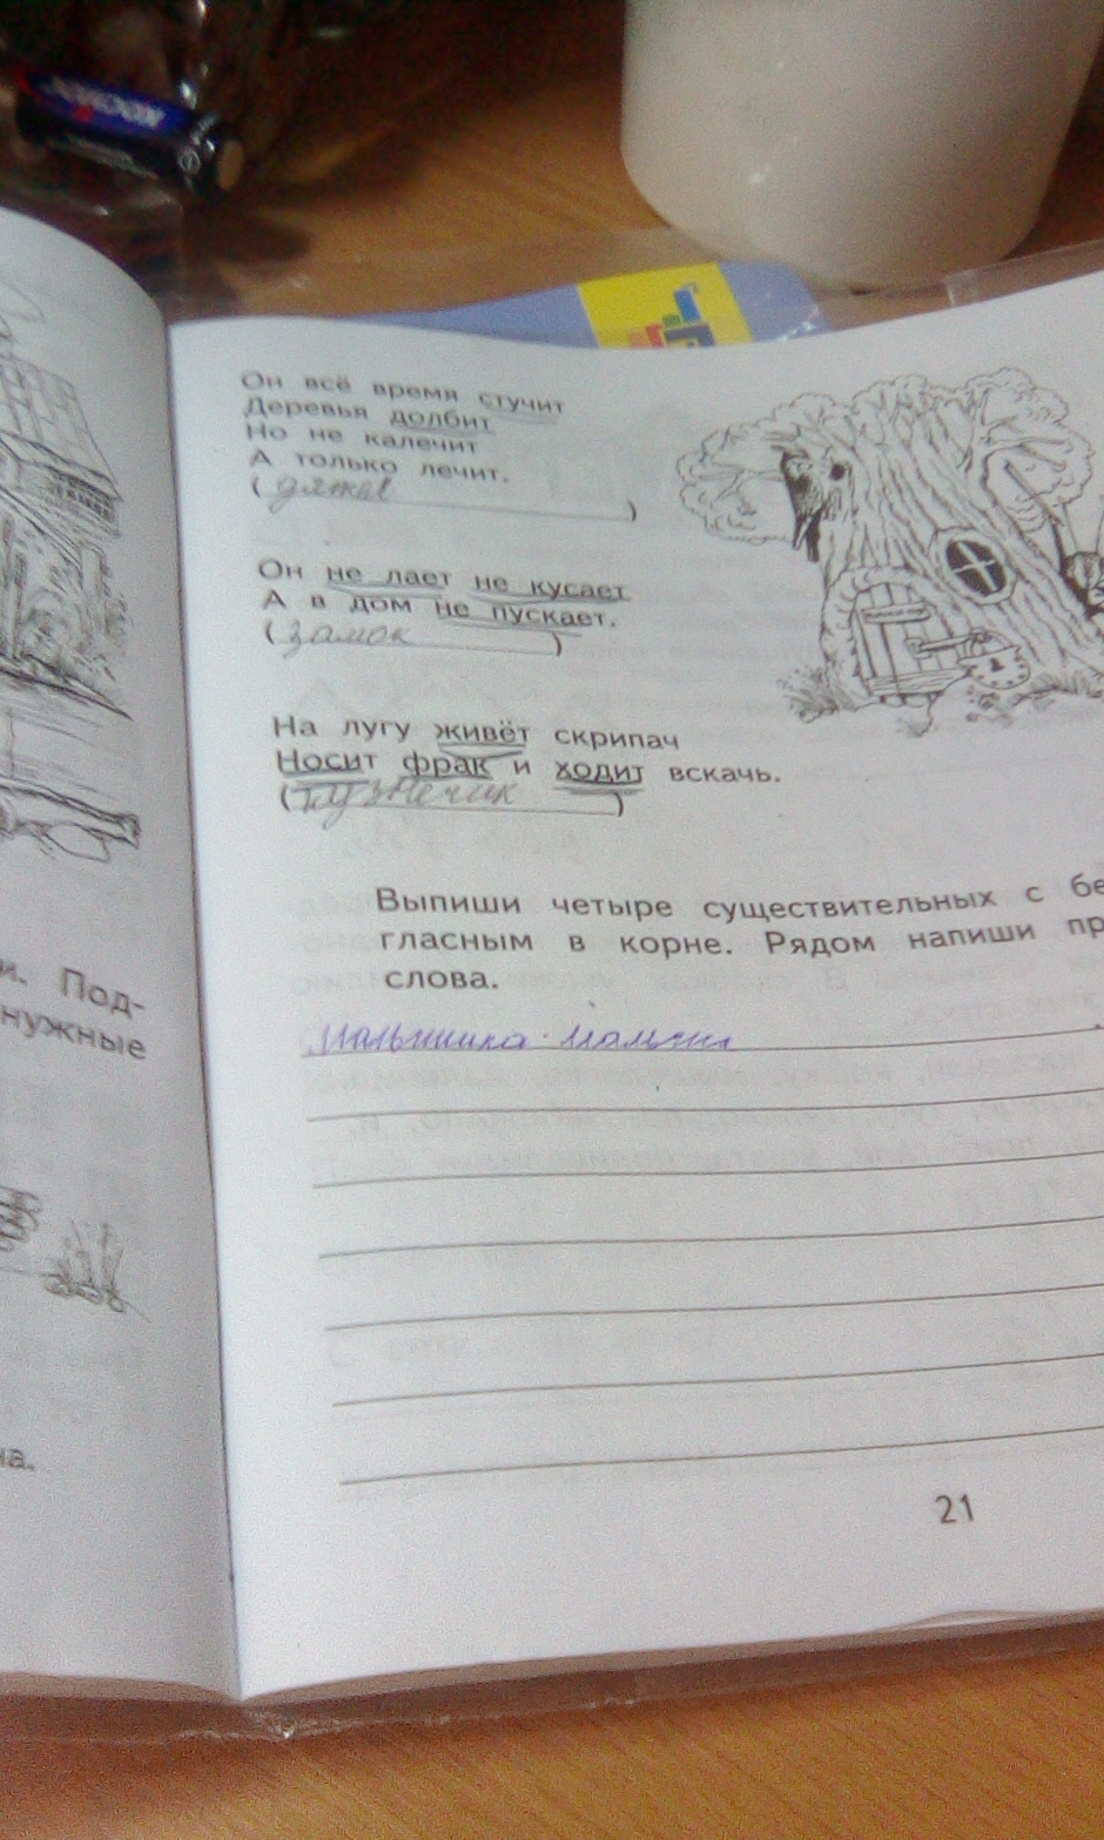 КОСМОС
Он всё время стучит
Деревья долбит
Но не калечит
А только лечит.
(дятел)
Он не лает не кусает
А в дом не пускает.
(замок)
На лугу живёт скрипач
Носит фрак и ходит вскачь.
(кузнечик)
и. Под-
нужные
на.
Выпиши четыре существительных с бе
гласным в корне. Рядом напиши пр
слова.
21